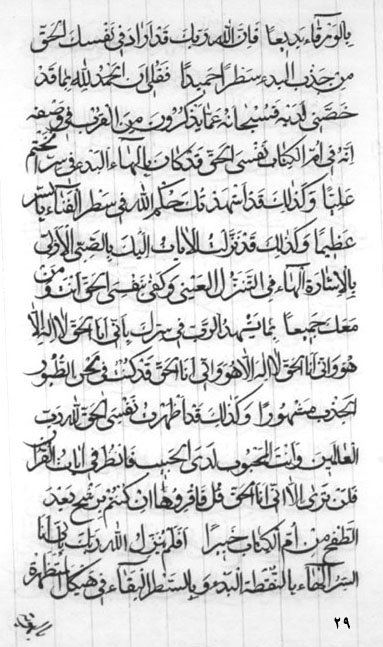 بالورقاء بديعا فان الله ربك قد اراد في نفسك الحق
من جذب البدء سطرا حميدا فقل ان الحمد لله بما قد
خصني لديه فسبحانه عما يذكرون من الغرب في وصفه
انه في ام الكتاب نفسي الحق قد كان بالهاء البدء في سر مختم
عليا وكذلك قد اشهدتك حكم الله في سطر القناء بالسر
عظيما وكذلك قد نزلت الايات اليك بالصبي الاولى
بالاشارة الهاء في التنزل العيني وكفى بنفسي الحق انت ومن
معك جميعا بما يشهد الرق في سرك باني انا الحق لا اله الا
هو واني انا الحق لا اله الا هو واني انا الحق قد كنت في بحر الظهور
الجذب مشهورا وكذلك قد اظهرت نفسي الحق لله رب
العالمين وانت المحبوب لدى الحبيب فانظر في ايات القران
فلن ترى الا اني انا الحق قل فاقروها ان كنتم من بعد
الطفح من ام الكتاب خبيرا افلم نزل الله ربك باني انا
السر الهاء بالنقطة البدء وبالسطر البقاء في هيكل
٢٩